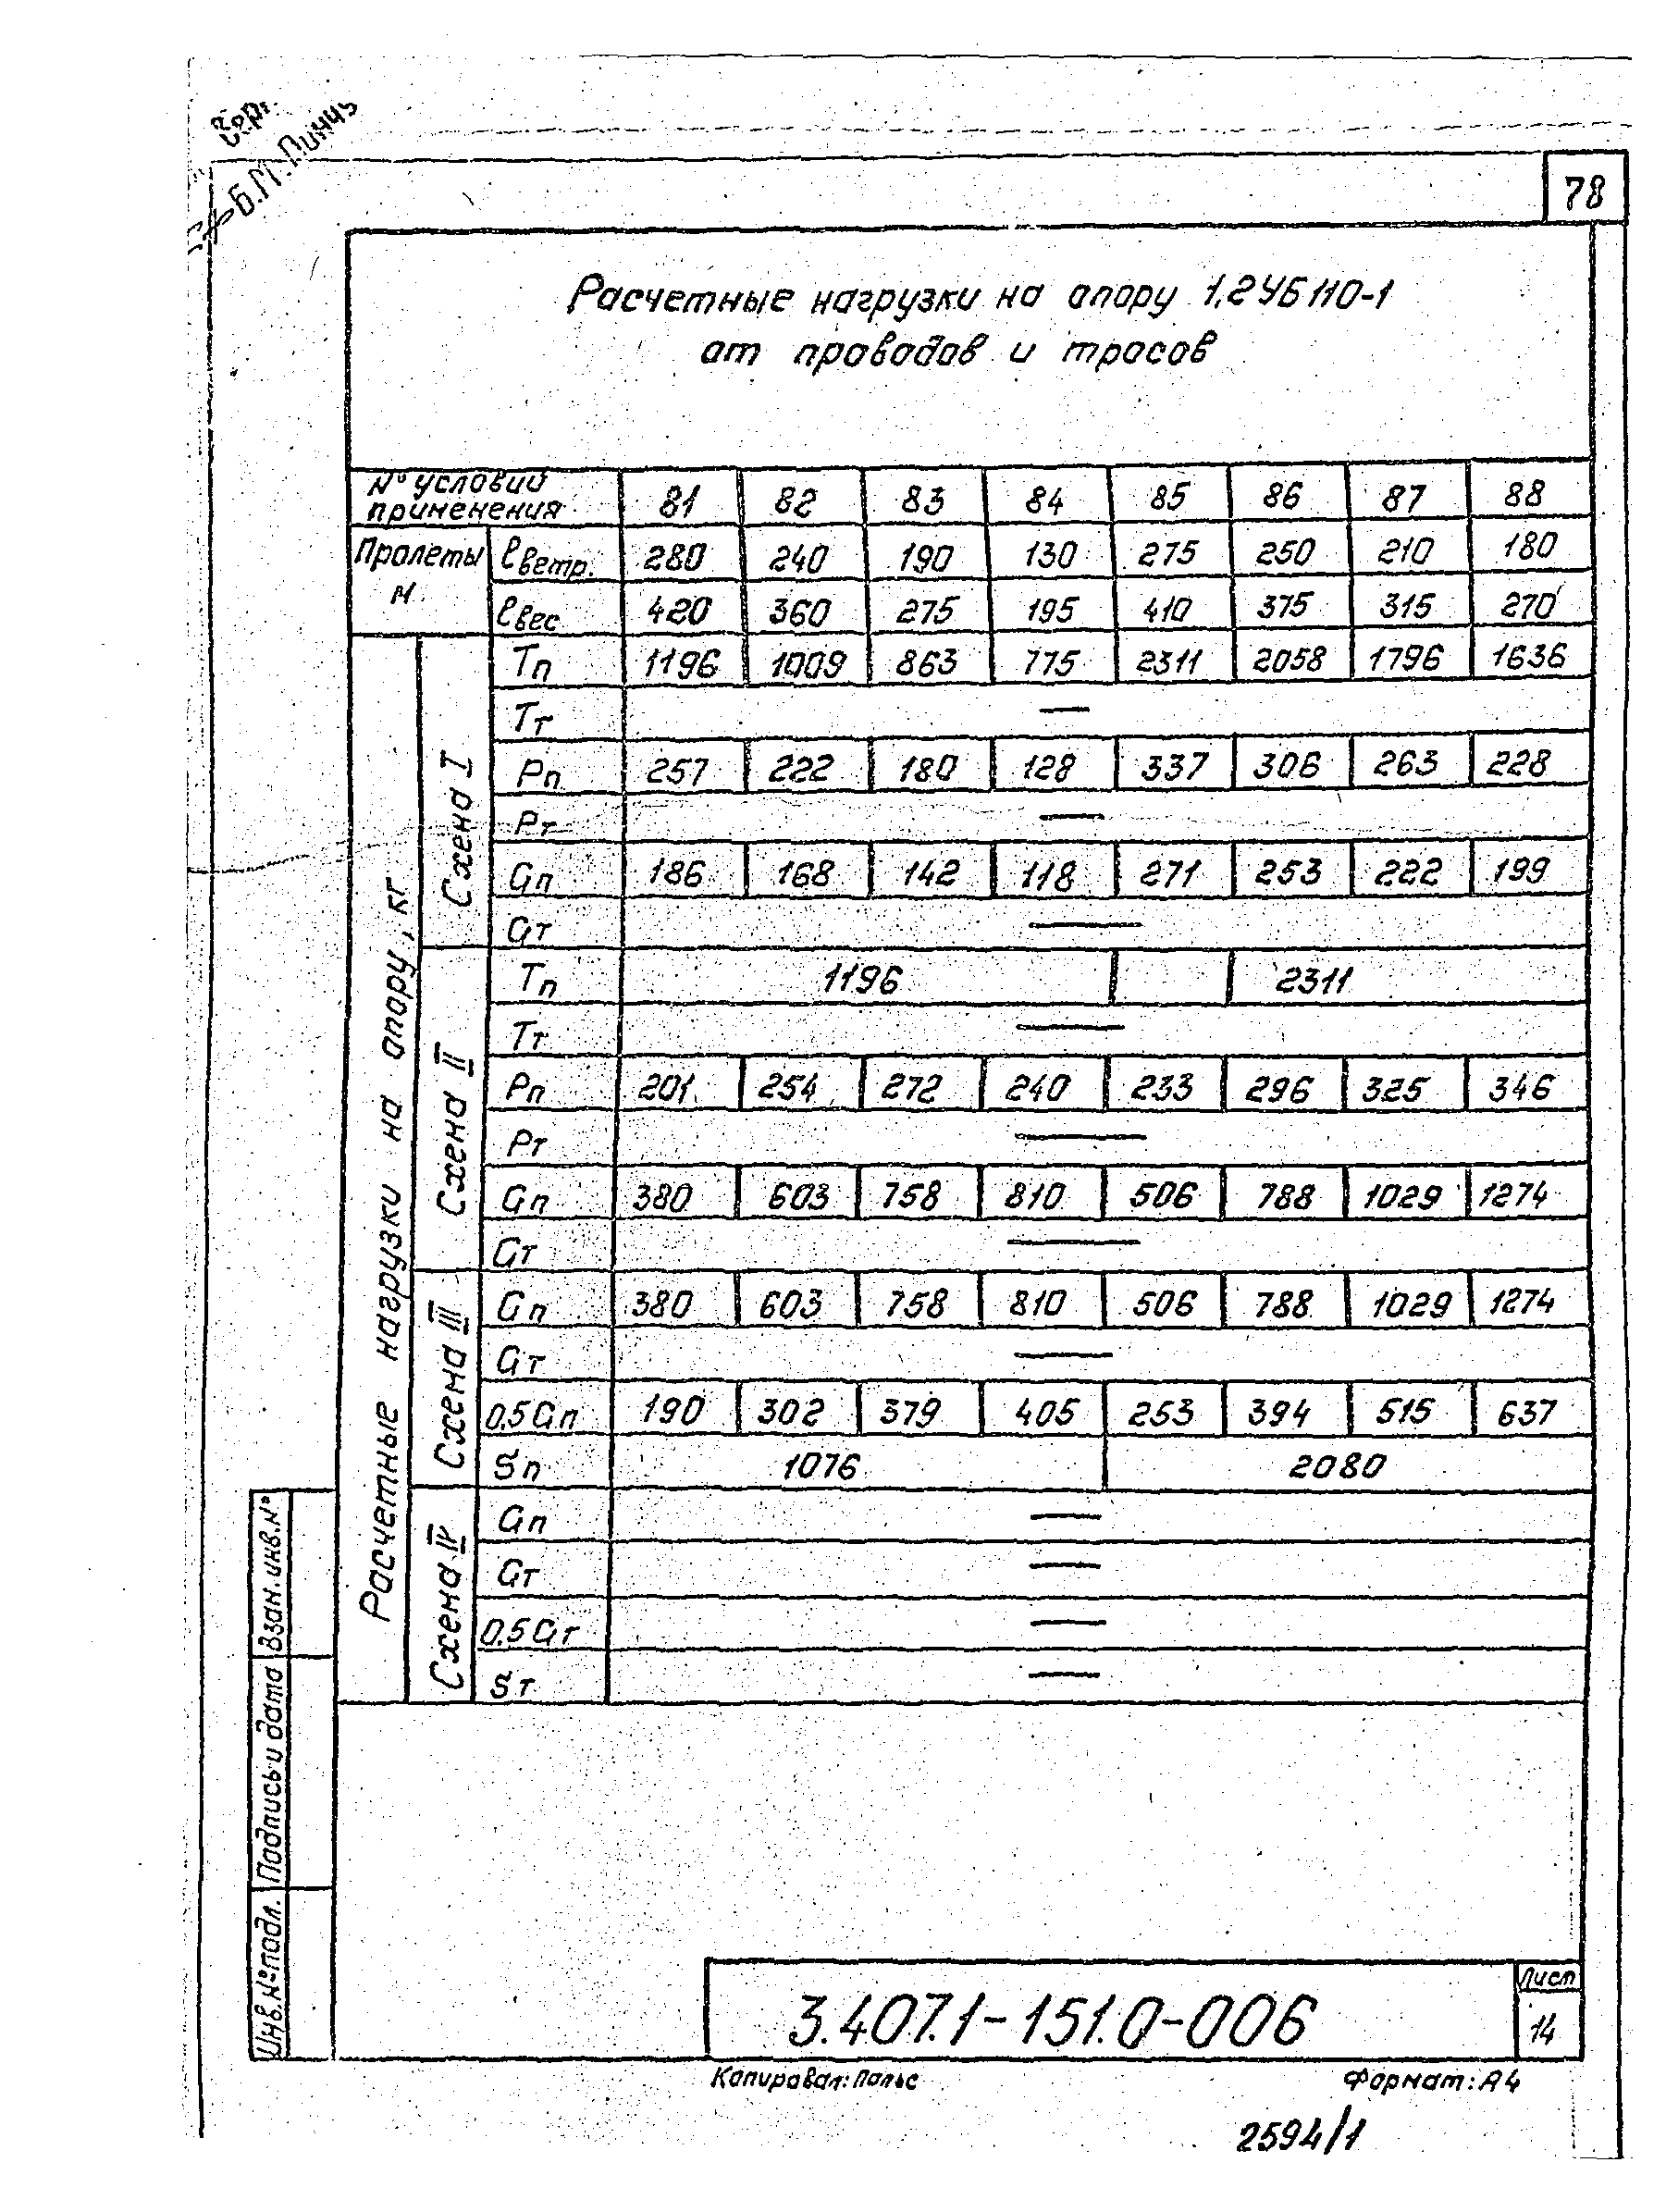 Б.М. Линчу
78
Расчетные нагрузки на опору 1,2УБ110-1
от проводов и тросов
N° условий применения 81 82 83 84 85 86 87 88
Пролеты м
ℓветр. 280 240 190 130 275 250 210 180
ℓвес 420 360 275 195 410 375 315 270
Расчетные нагрузки на опору, кг
Схема I
Тп 1196 1009 863 775 2311 2058 1796 1636
Тт —
Рп 257 222 180 128 337 306 263 228
Рт —
Gп 186 168 142 118 271 253 222 199
Gт —
Схема II
Тп 1196 2311
Тт —
Рп 201 254 272 240 233 296 325 346
Рт —
Gп 380 603 758 810 506 788 1029 1274
Gт —
Схема III
Gп 380 603 758 810 506 788 1029 1274
Gт —
0.5Gп 190 302 379 405 253 394 515 637
Sп 1076 2080
Схема IV
Gп —
Gт —
0.5Gт —
Sт —
Взам. инв. N°
Подпись и дата
Инв. N° подл.
3.407.1-151.0-006
Лист
14
Копировал: Польс
Формат: А4
2594/1